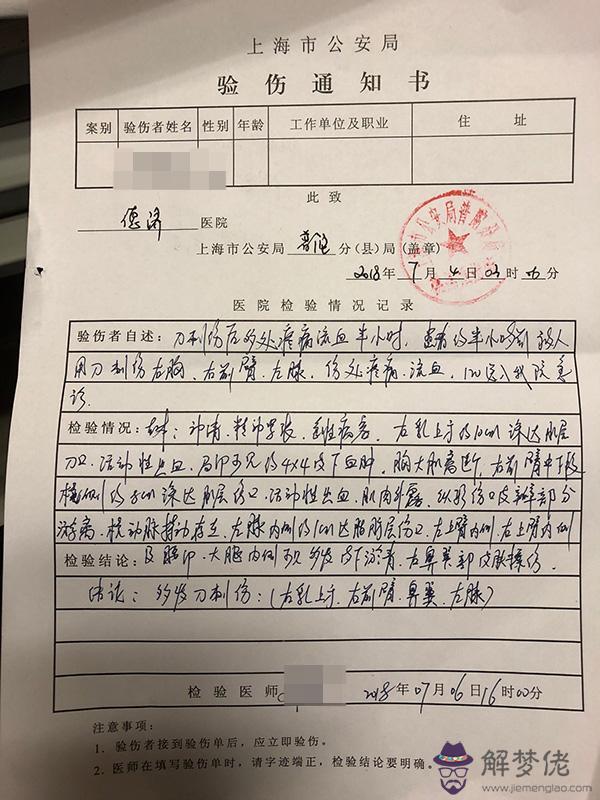 上海市公安局
验伤通知书
案别 验伤者姓名 性别 年龄 工作单位及职业 住址
此致
德济 医院
上海市公安局 普陀 分(县)局(盖章)
2018年7月4日03时 分
医院检验情况记录
验伤者自述：刀刺伤后多处疼痛流血半小时，患者约半小时前被人
用刀刺伤左胸、右前臂、左膝，伤处疼痛、流血，120送入我院急
诊.
检验情况：查体：神清、精神 、急性病容，左乳上方约10cm深达肌层
刀口、活动性出血，局部可见约4×4皮下血肿，胸大肌离断，右前臂中下段
约8cm深达肌层伤口、活动性出血，肌肉外露，
，桡动脉搏动存在，左膝内侧约1cm达脂肪层伤口，左上臂内侧、右上臂内侧
检验结论：及腰部、大腿内侧可见多发皮下淤青，右鼻翼部皮肤擦伤.
结论：多发刀刺伤：(左乳上方、右前臂、鼻翼、左膝)
检验医师 2018年07月06日16时00分
注意事项：
1. 验伤者接到验伤单后，应立即验伤。
2. 医师在填写验伤单时，请字迹端正，检验结论要明确。
解梦佬
www.jiemenglao.com